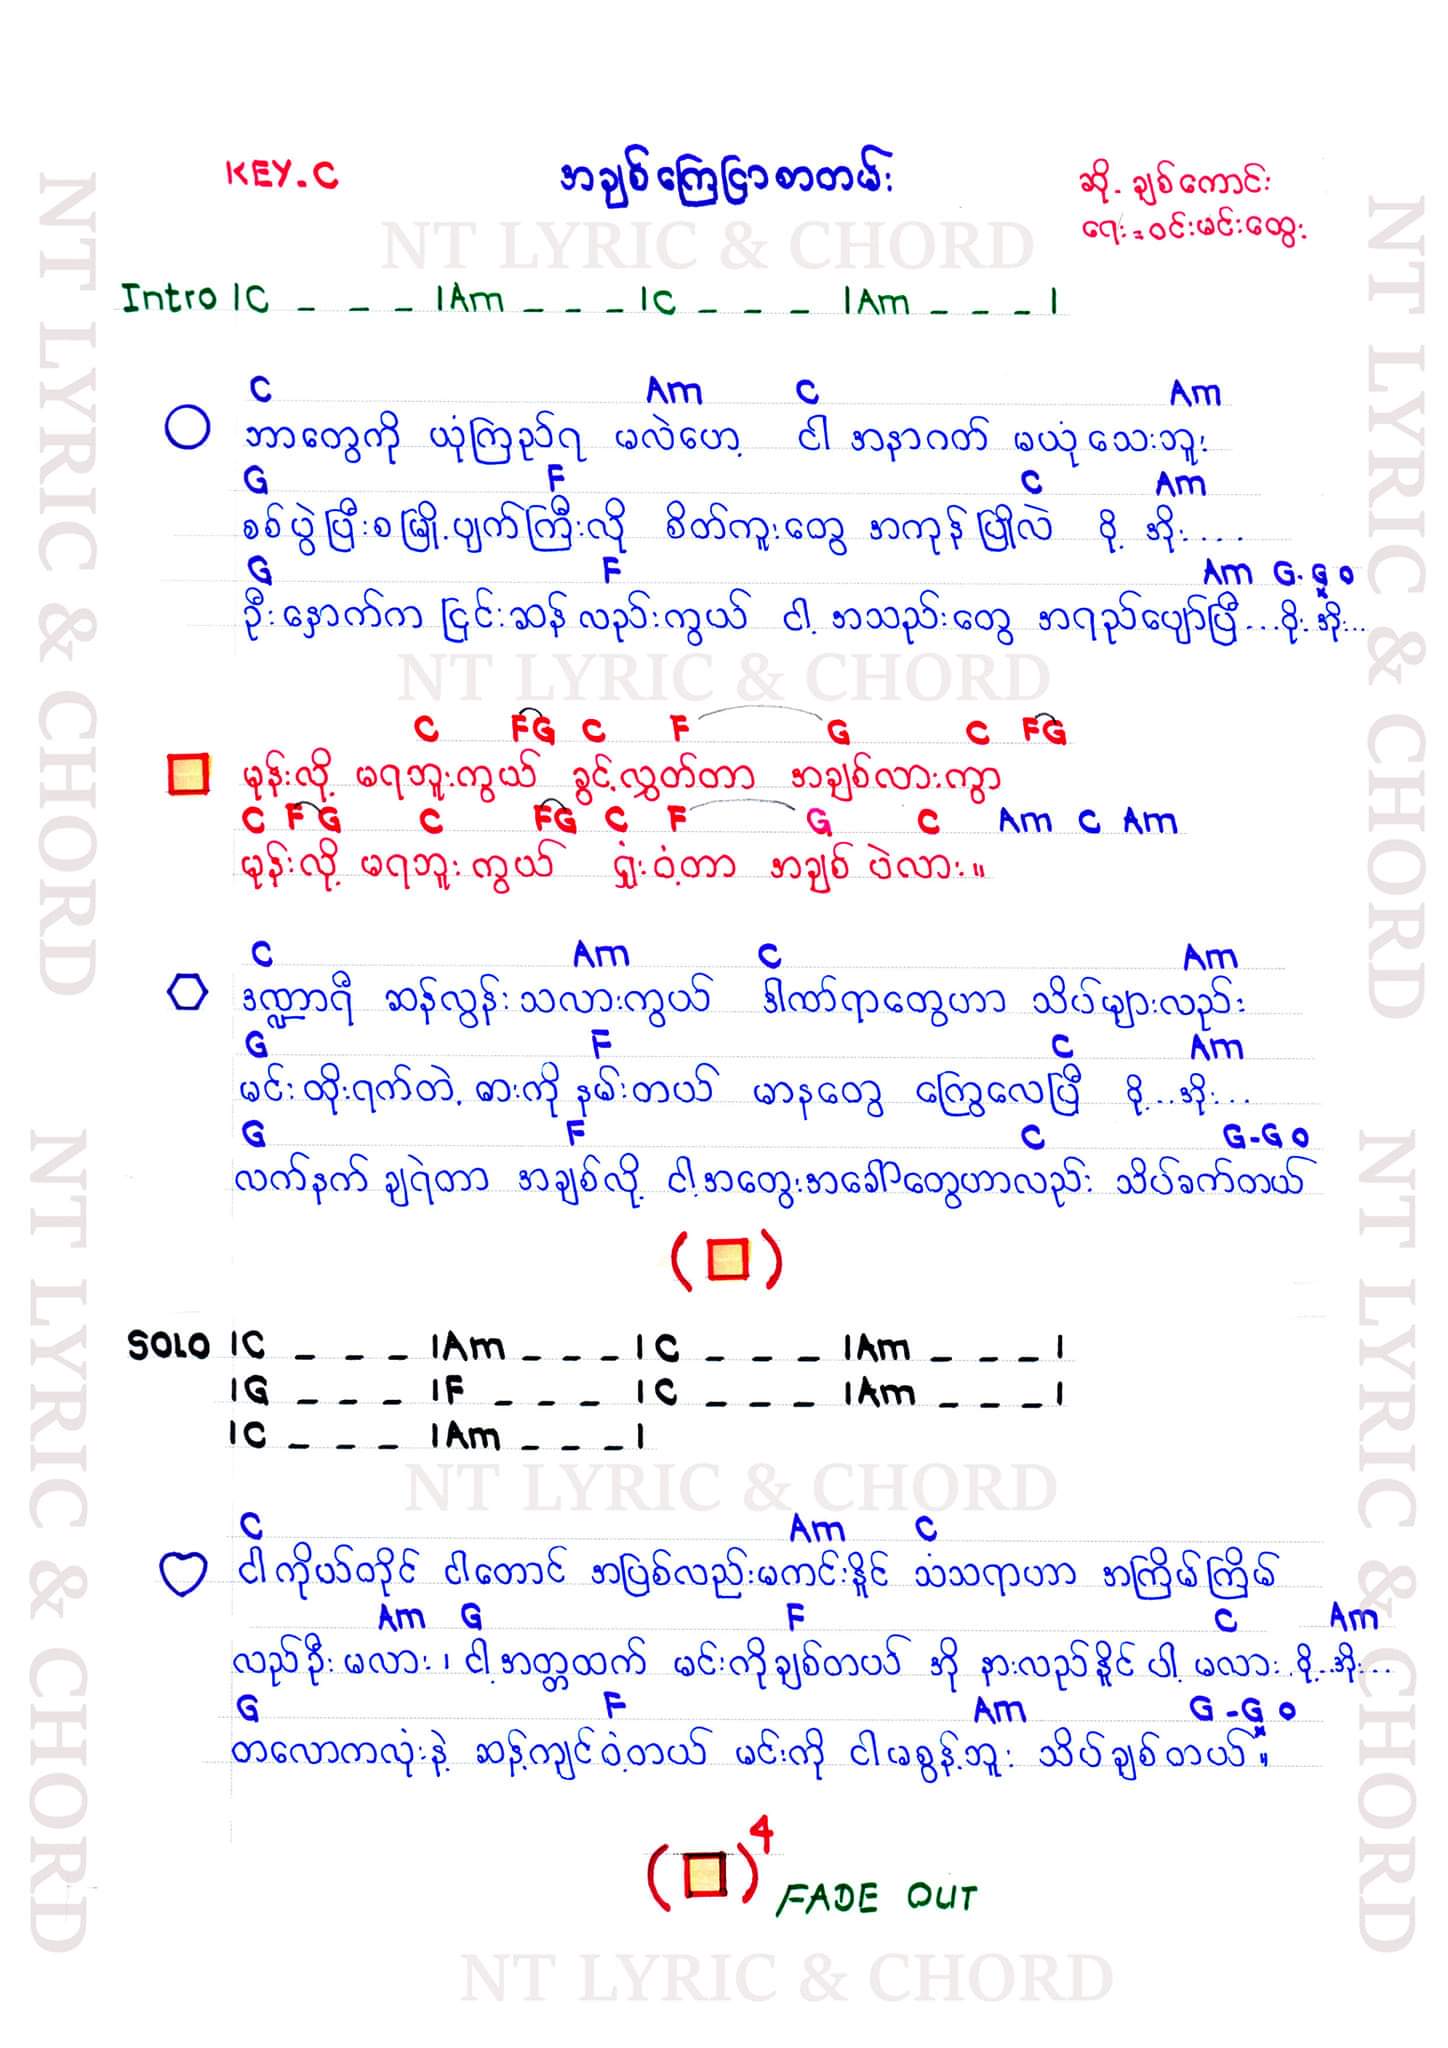 KEY.C
အချစ်ကြေငြာစာတမ်း
ဆို. ချစ်ကောင်း
ရေး = ဝင်းမင်းထွေး
NT LYRIC & CHORD
Intro |C _ _ _ |Am _ _ _ |C _ _ _ |Am _ _ _ |
C Am C Am
ဘာတွေကို ယုံကြည်ရ မလဲဟေ့ ငါ အနာဂတ် မယုံသေးဘူး
G F C Am
စစ်ပွဲပြီးစ မြို့ပျက်ကြီးလို စိတ်ကူးတွေ အကုန်ပြိုလဲ ဝို့ အိုး....
G F Am G-G 0
ဦးနှောက်က ငြင်းဆန်လည်းကွယ် ငါ့ အသည်းတွေ အရည်ပျော်ပြီ...ဝိုး အိုး...
NT LYRIC & CHORD
C FG C F G C FG
မုန်းလို့ မရဘူးကွယ် ခွင့်လွှတ်တာ အချစ်လားကွာ
C FG C FG C F G C Am C Am
မုန်းလို့ မရဘူးကွယ် ရှုံးဝံ့တာ အချစ်ပဲလား။
C Am C Am
ဒဏ္ဍာရီ ဆန်လွန်းသလားကွယ် ဒါဏ်ရာတွေဟာ သိပ်များလည်း
G F C Am
မင်းထိုးရက်တဲ့ ဓားကိုနမ်းတယ် မာနတွေ ကြွေလေပြီ ဝို့...အိုး...
G F C G-G 0
လက်နက်ချရဲတာ အချစ်လို့ ငါ့အတွေးအခေါ်တွေဟာလည်း သိပ်ခက်တယ်
( )
SOLO |C _ _ _ |Am _ _ _ |C _ _ _ |Am _ _ _ |
|G _ _ _ |F _ _ _ |C _ _ _ |Am _ _ _ |
|C _ _ _ |Am _ _ _ |
NT LYRIC & CHORD
C Am C
ငါကိုယ်တိုင် ငါတောင် အပြစ်လည်းမကင်းနိုင် သံသရာဟာ အကြိမ်ကြိမ်
Am G F C Am
လည်ဦးမလား၊ ငါ့အတ္တထက် မင်းကိုချစ်တယ် အို နားလည်နိုင်ပါ့ မလား ဝို့...အိုး...
G F Am G-G 0
တလောကလုံးနဲ့ ဆန့်ကျင်ဝံ့တယ် မင်းကို ငါမစွန့်ဘူး သိပ်ချစ်တယ်။
( )4
FADE OUT
NT LYRIC & CHORD
NT LYRIC & CHORD
NT LYRIC & CHORD
NT LYRIC & CHORD
NT LYRIC & CHORD